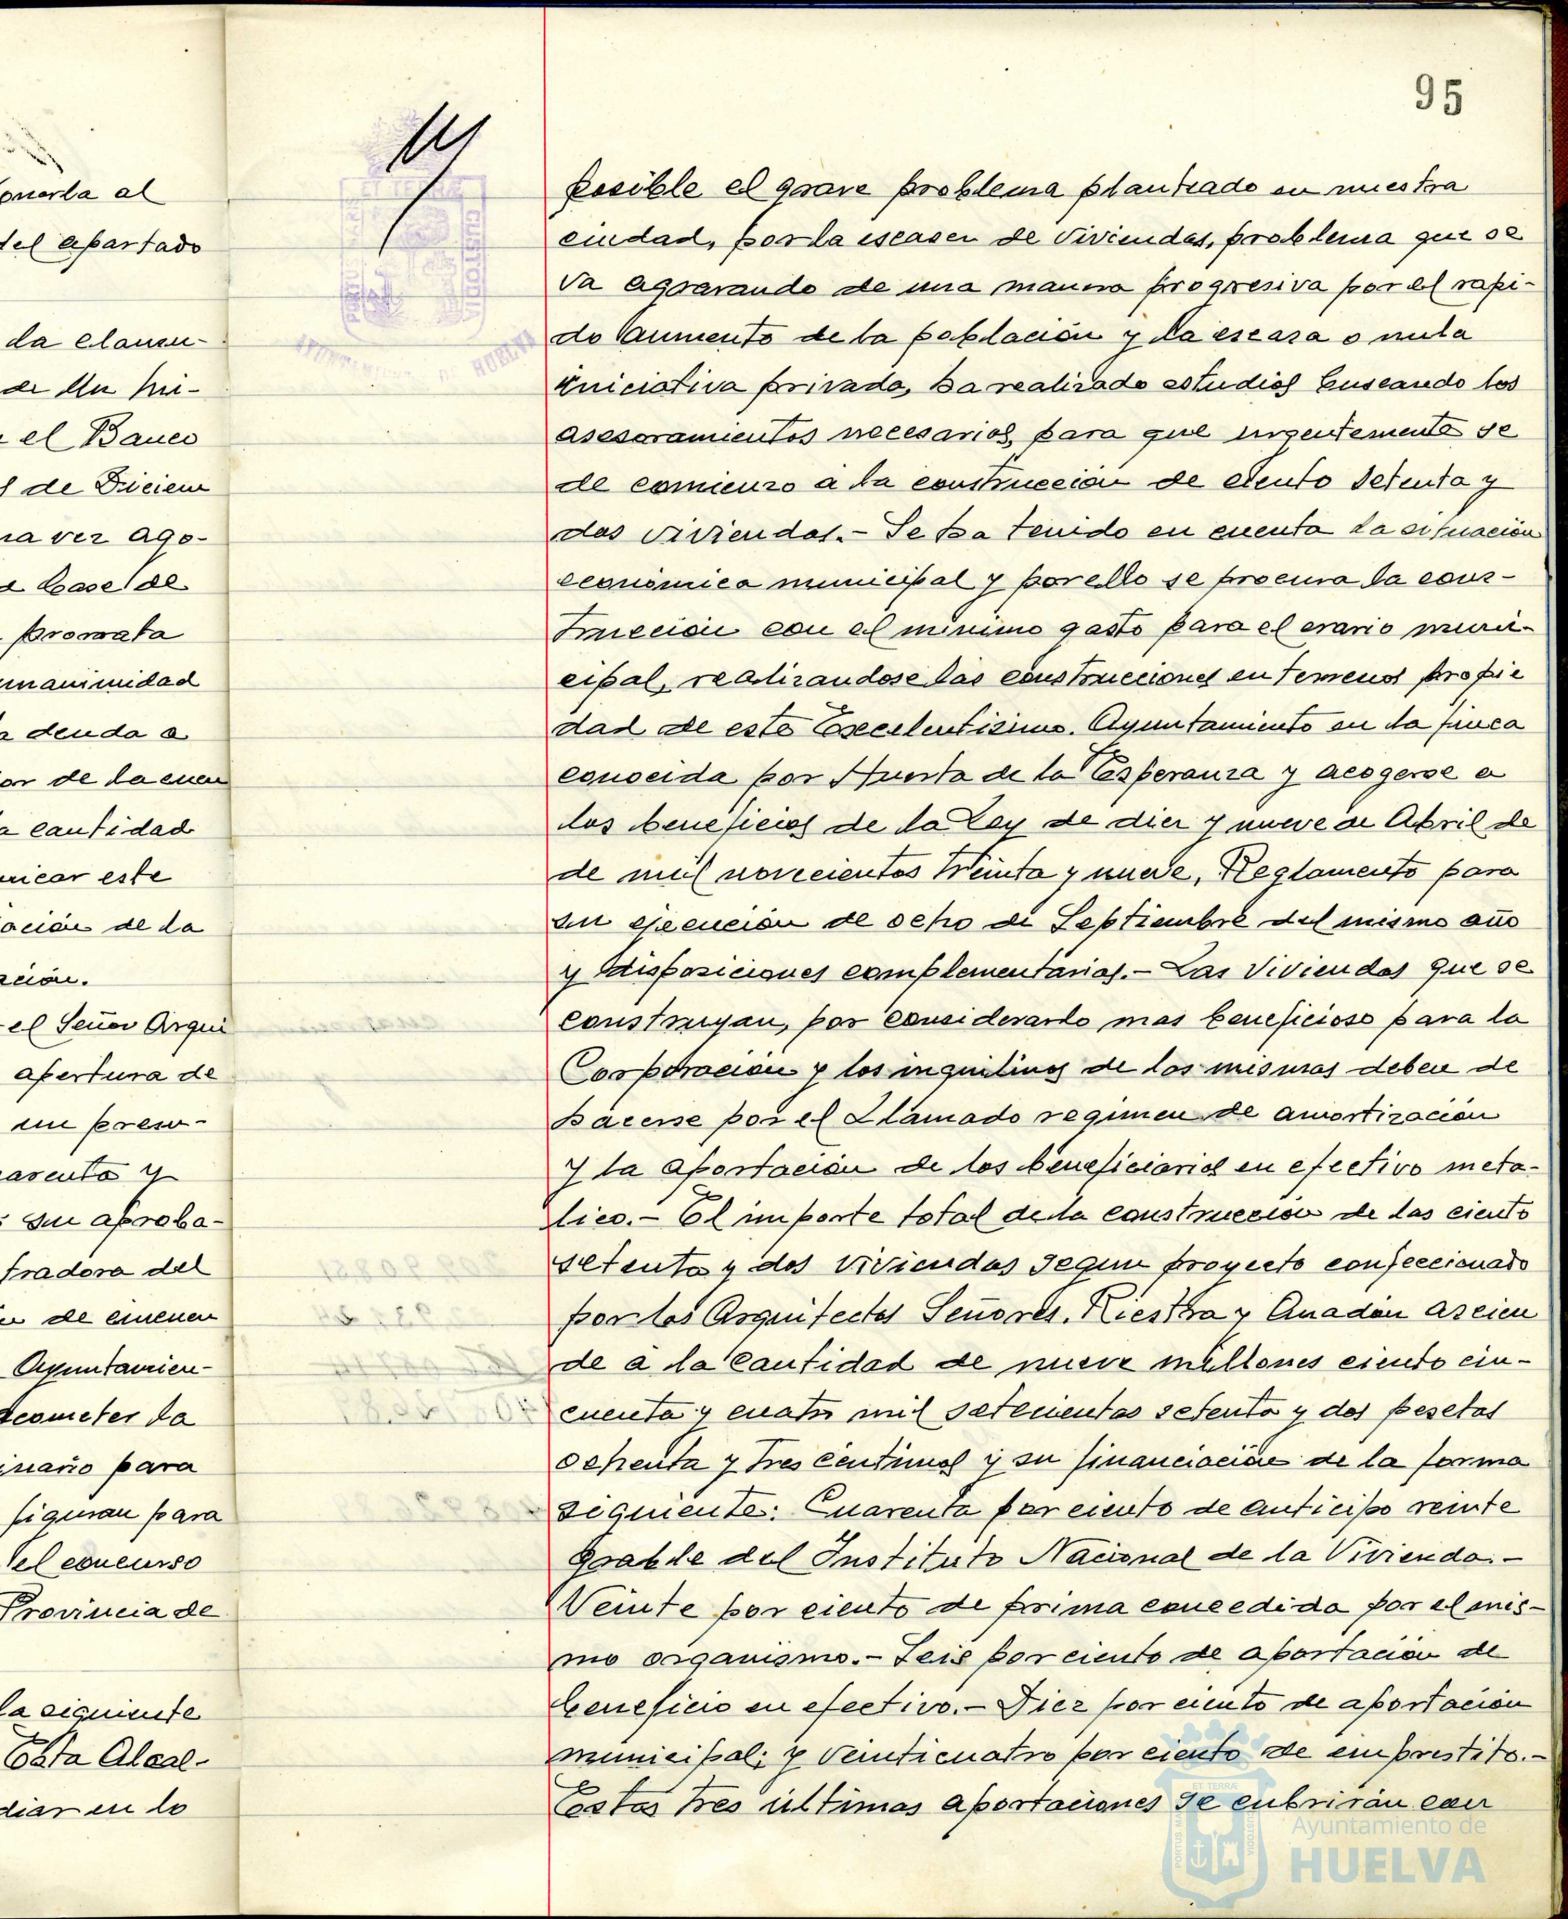 95
posible el grave problema planteado en nuestra
ciudad, por la escasez de viviendas, problema que se
va agravando de una manera progresiva por el rapi-
do aumento de la población y la escasa o nula
iniciativa privada, ha realizado estudios buscando los
asesoramientos necesarios, para que urgentemente se
de comienzo a la construccion de ciento setenta y
dos viviendas.- Se ha tenido en cuenta la situación
económica municipal y por ello se procura la cons-
trucción con el minimo gasto para el erario muni-
cipal, realizandose las construcciones en terrenos propie
dad de este Excelentisimo. Ayuntamiento en la finca
conocida por Huerta de la Esperanza y acogerse a
los beneficios de la Ley de diez y nueve de Abril de
de mil novecientos treinta y nueve, Reglamento para
su ejecución de ocho de Septiembre del mismo año
y disposiciones complementarias.- Las viviendas que se
construyan, por considerarlo mas beneficioso para la
Corporación y los inquilinos de las mismas deben de
hacerse por el llamado regimen de amortización
y la aportación de los beneficiarios en efectivo meta-
lico.- El importe total de la construccion de las ciento
setenta y dos viviendas segun proyecto confeccionado
por los Arquitectos Señores. Riestra y Anadón ascien
de a la cantidad de nueve millones ciento cin-
cuenta y cuatro mil setecientas setenta y dos pesetas
ochenta y tres centimos y su financiación de la forma
siguiente: Cuarenta por ciento de anticipo reinte
grable del Instituto Nacional de la Vivienda.-
Veinte por ciento de prima concedida por el mis-
mo organismo.- Seis por ciento de aportación de
beneficio en efectivo.- Diez por ciento de aportación
municipal; y veinticuatro por ciento de emprestito.-
Estas tres últimas aportaciones se cubrirán con
al
del apartado
da
de
el Banco
de Diciem
vez ago-
base de
prorrata
unanimidad
deuda a
de la cuen
cantidad
este
de la
el Señor Arqui
apertura de
un presu-
y
su aproba-
del
de
Ayuntamien-
acometer la
para
figuran para
el concurso
Provincia de
la siguiente
Esta Alcal-
en lo
ET TERRA
CUSTODIA
AYUNTAMIENTO DE HUELVA
Ayuntamiento de
HUELVA